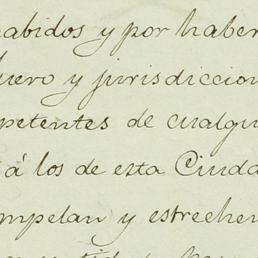 habidos y por haber
uero y jurisdiccion
petentes de cualqui
á los de esta Ciuda
mpelan y estreche